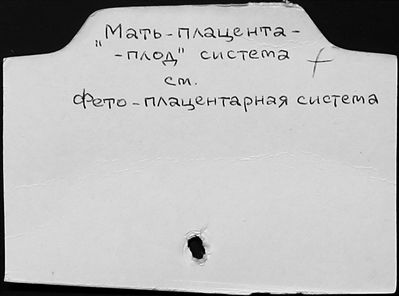 "Мать-плацента-
-плод" система
см.
Фето-плацентарная система